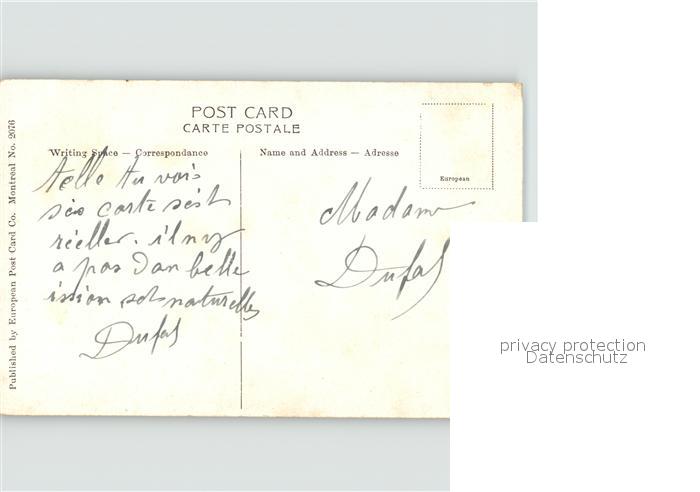 POST CARD
CARTE POSTALE
Writing Space — Correspondance
Name and Address — Adresse
European
Published by European Post Card Co. Montreal No. 2076
tu vois
carte sést
réeller. il ny
a pas dan belle
ision sot naturelle
Dufal
Madame
Dufal
privacy protection
Datenschutz